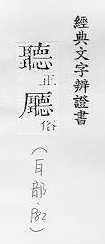 經典文字辨證書
聽正
廳俗
(耳部·